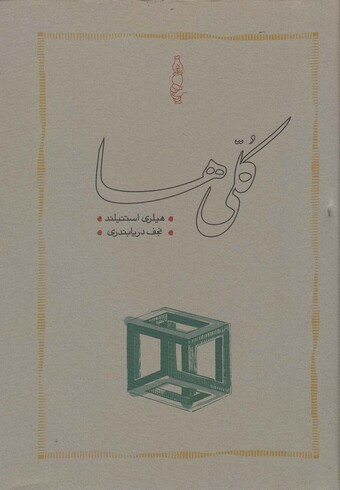 کُلّی‌ها
هیلری استنیلند
نجف دریابندری